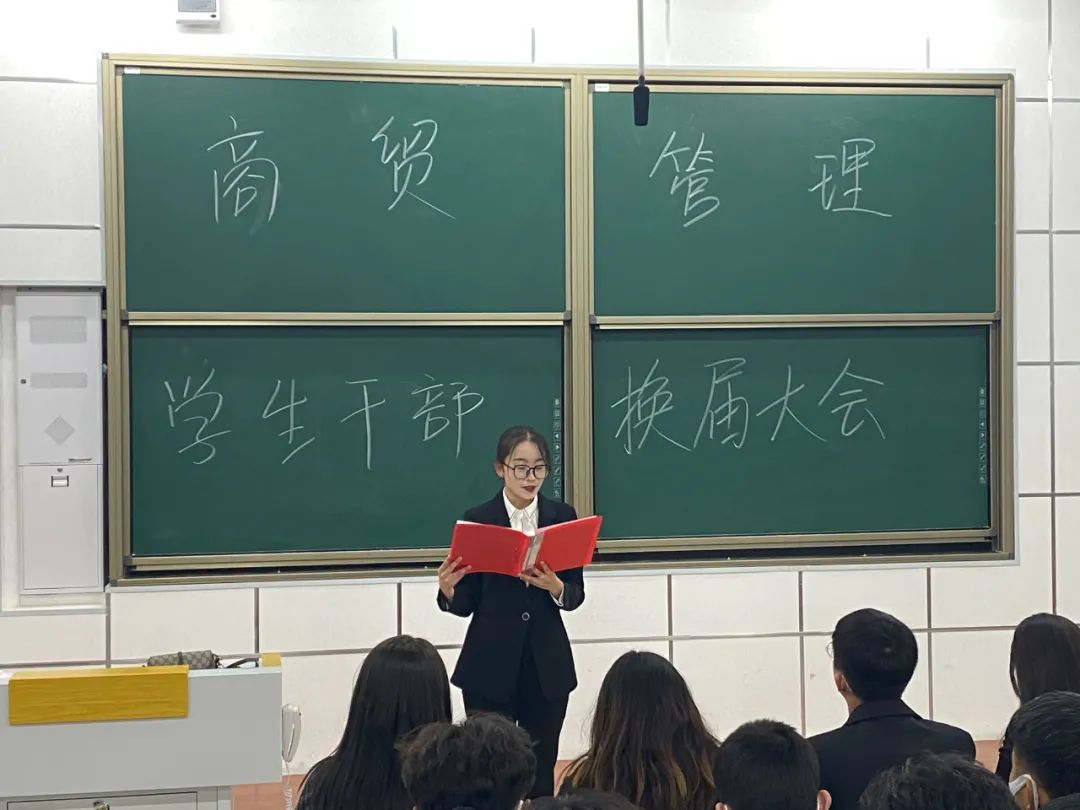 商贸管理
学生干部换届大会